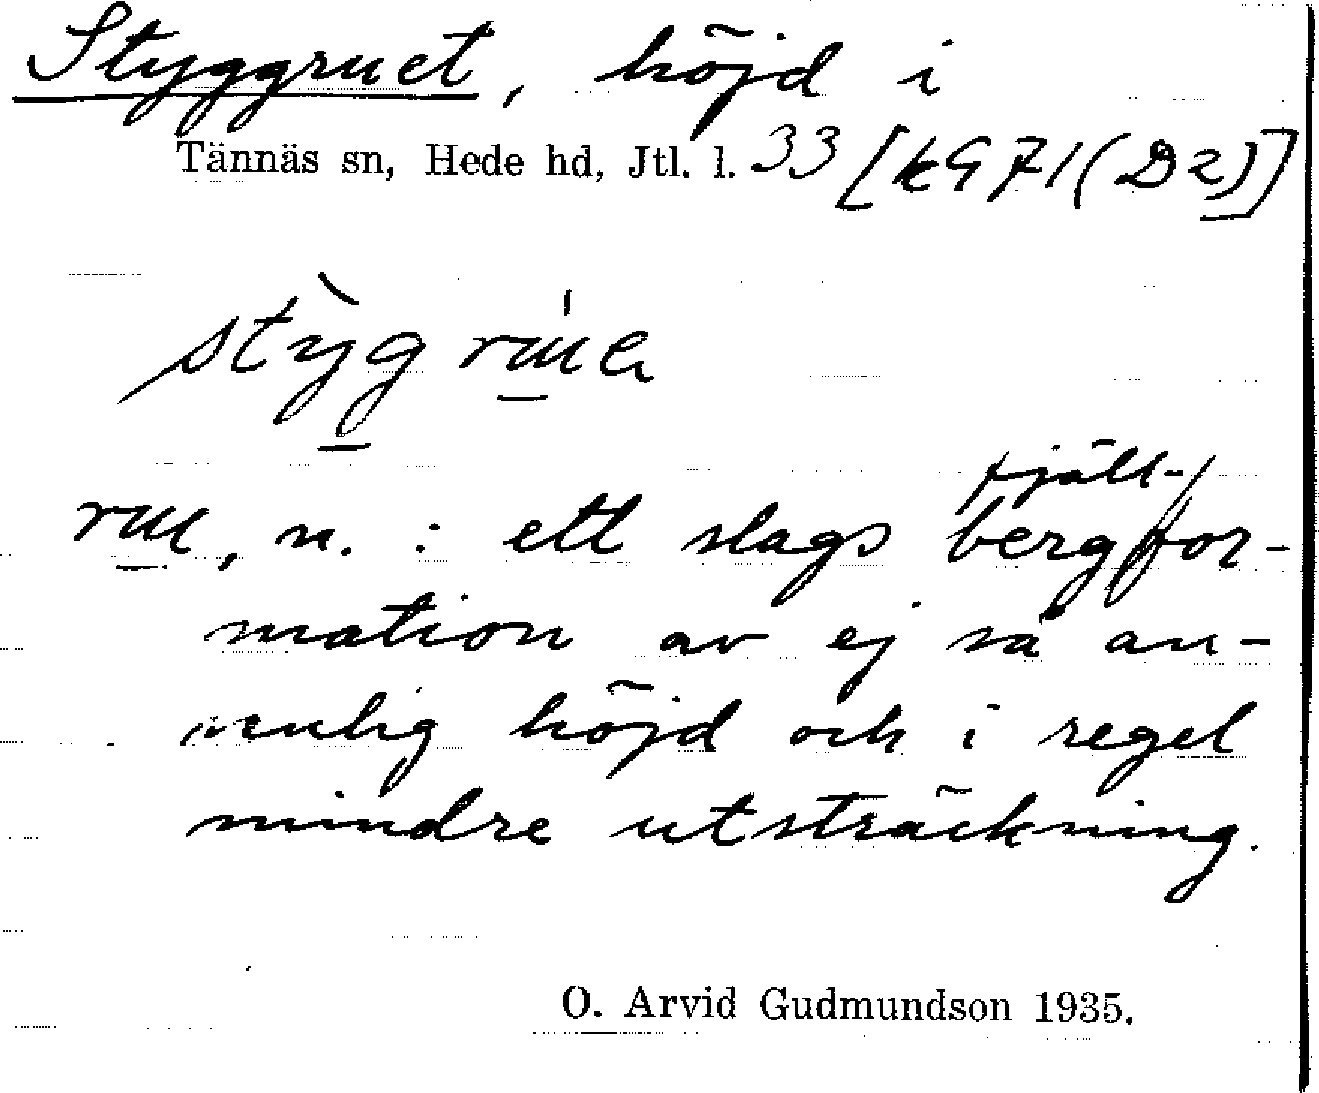 Styggruet, höjd i
Tännäs sn, Hede hd, Jtl. l. 33 [k971(D2)]
stỳg
fjäll-/
, n. : ett slags bergfor-
mation av ej så an-
senlig höjd och i regel
mindre utsträckning.
O. Arvid Gudmundson 1935.